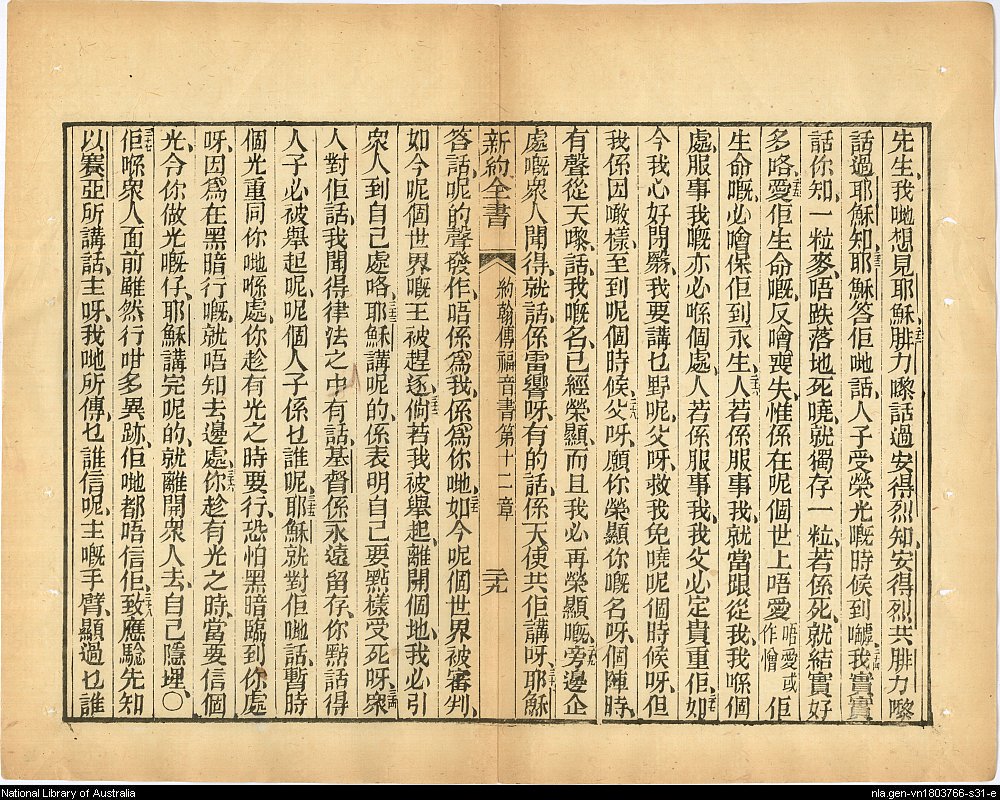 先生、我哋想見耶穌、二十二腓力嚟話過安得烈知、安得烈共腓力嚟
話過耶穌知、二十三耶穌答佢哋話、人子受榮光嘅時候到嚹、二十四我實實
話你知、一粒麥、唔跌落地死曉、就獨存一粒、若係死、就結實好
多咯、二十五愛佢生命嘅、反噲喪失、惟係在呢個世上唔愛唔愛或作憎佢
生命嘅、必噲保佢到永生、二十六人若係服事我、就當跟從我、我喺個
處、服事我嘅亦必喺個處、人若係服事我、我父必定貴重佢、二十七如
今我心好閉翳、我要講乜野呢、父呀、救我免曉呢個時候呀、但
我係因噉樣、至到呢個時候、二十八父呀、願你榮顯你嘅名呀、個陣時、
有聲從天嚟、話、我嘅名、已經榮顯、而且我必再榮顯嘅、二十九旁邊企
處嘅衆人聞得、就話係雷響呀、有的話、係天使共佢講呀、三十耶穌
新約全書 約翰傳福音書第十二章 二十九
答話、呢的聲發作、唔係爲我、係爲你哋、三十一如今呢個世界被審判、
如今呢個世界嘅王被趕逐、三十二倘若我被舉起、離開個地、我必引
衆人到自己處咯、三十三耶穌講呢的、係表明自己要點樣受死呀、三十四衆
人對佢話、我聞得律法之中、有話基督係永遠留存、你點話得
人子必被舉起呢、呢個人子係乜誰呢、三十五耶穌就對佢哋話、暫時
個光重同你哋喺處、你趁有光之時要行、恐怕黑暗臨到你處
呀、因爲在黑暗行嘅、就唔知去邊處、三十六你趁有光之時、當要信個
光、令你做光嘅仔、耶穌講完呢的、就離開衆人去、自己隱埋、〇
三十七佢喺衆人面前雖然行咁多異跡、佢哋都唔信佢、三十八致應驗先知
以賽亞所講話、主呀、我哋所傳、乜誰信呢、主嘅手臂、顯過乜誰
National Library of Australia
nla.gen-vn1803766-s31-e